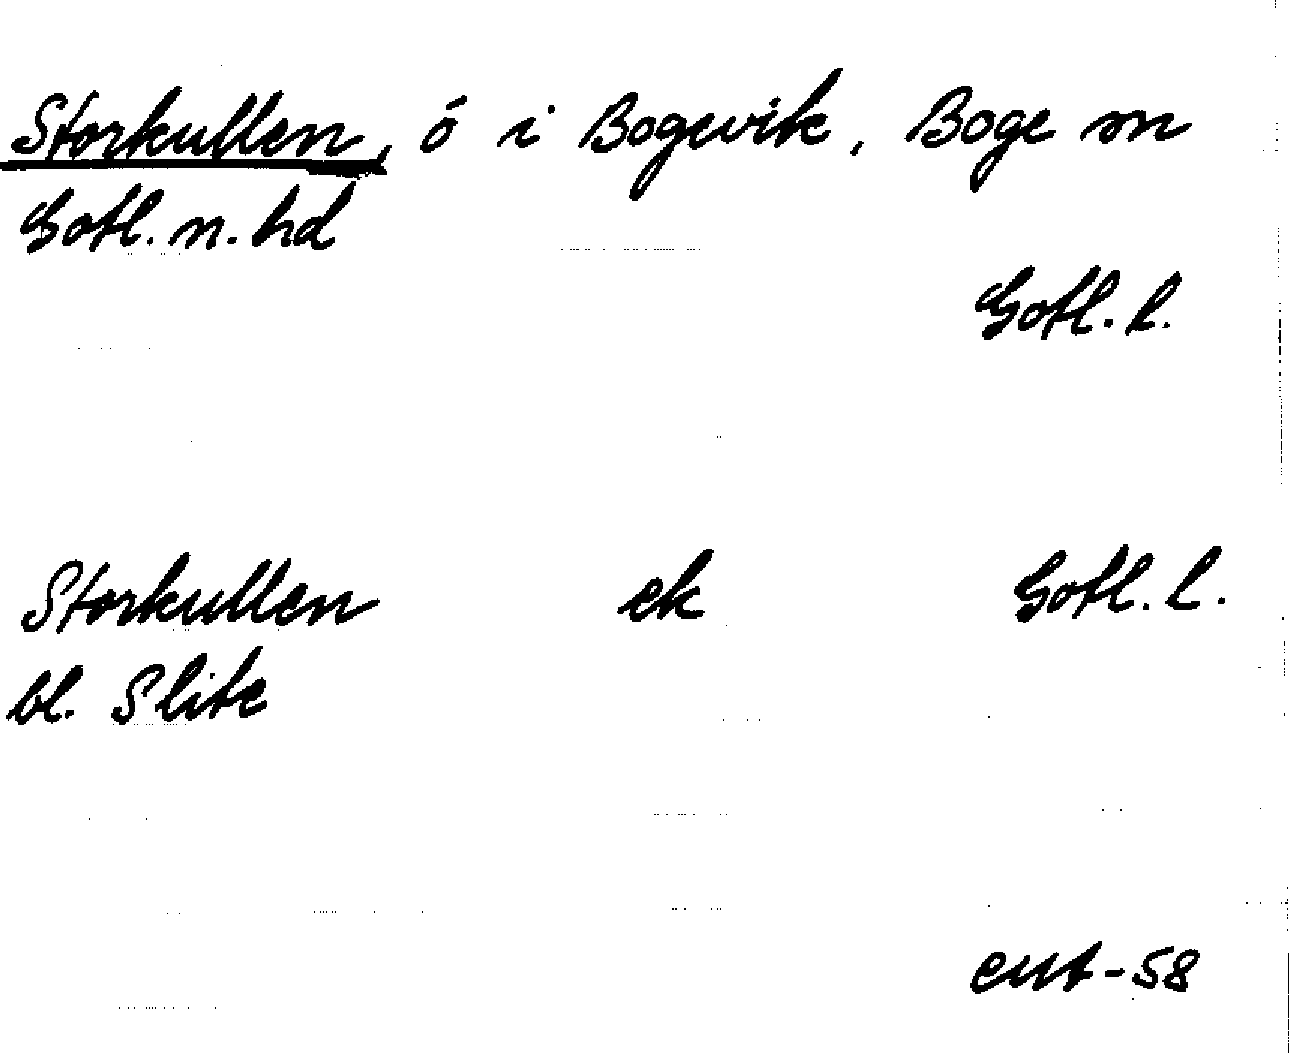 Storkullen, ö i Bogevik, Boge sn
Gotl. n. hd
Gotl. l.
Storkullen ek Gotl. l.
bl. Slite
-58